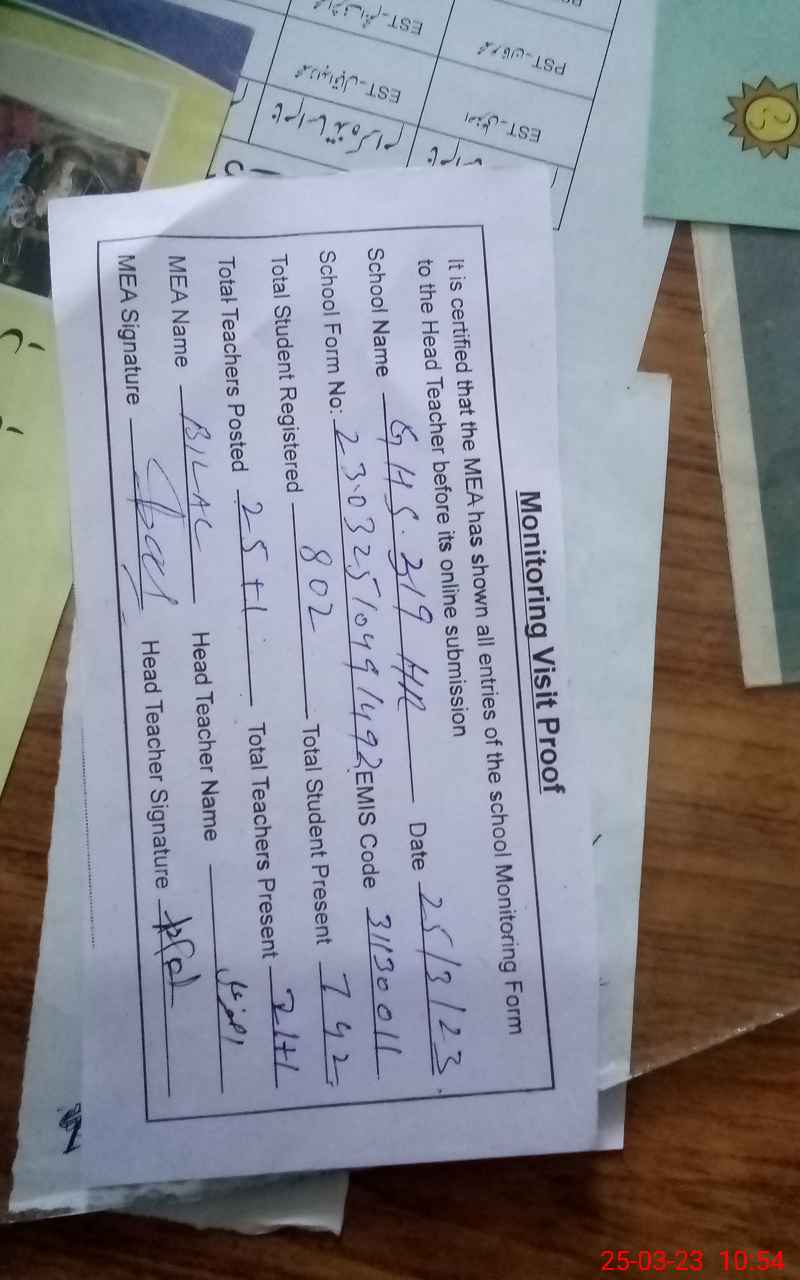 Monitoring Visit Proof
It is certified that the MEA has shown all entries of the school Monitoring Form
to the Head Teacher before its online submission
School Name GHS. 319 HR Date 25/3/23
School Form No: 23032510491492 EMIS Code 31130011
Total Student Registered 802 Total Student Present 742
Total Teachers Posted 25+1 Total Teachers Present 21+1
MEA Name BILAL Head Teacher Name
MEA Signature Head Teacher Signature
EST-
PST-
EST-
EST-
25-03-23 10:54